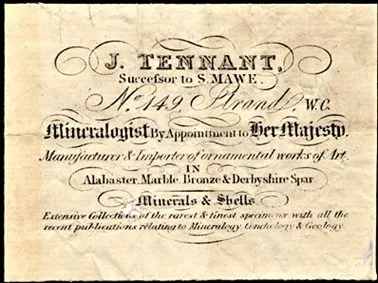 J. TENNANT,
Succeſsor to S. MAWE.
No. 149, Strand, W.C.
Mineralogist By Appointment to Her Majesty.
Manufacturer & Importer of ornamental works of Art.
IN
Alabaster, Marble, Bronze & Derbyshire Spar
Minerals & Shells.
Extensive Collections of the rarest & finest specimens with all the
recent publications relating to Mineralogy Conchology & Geology